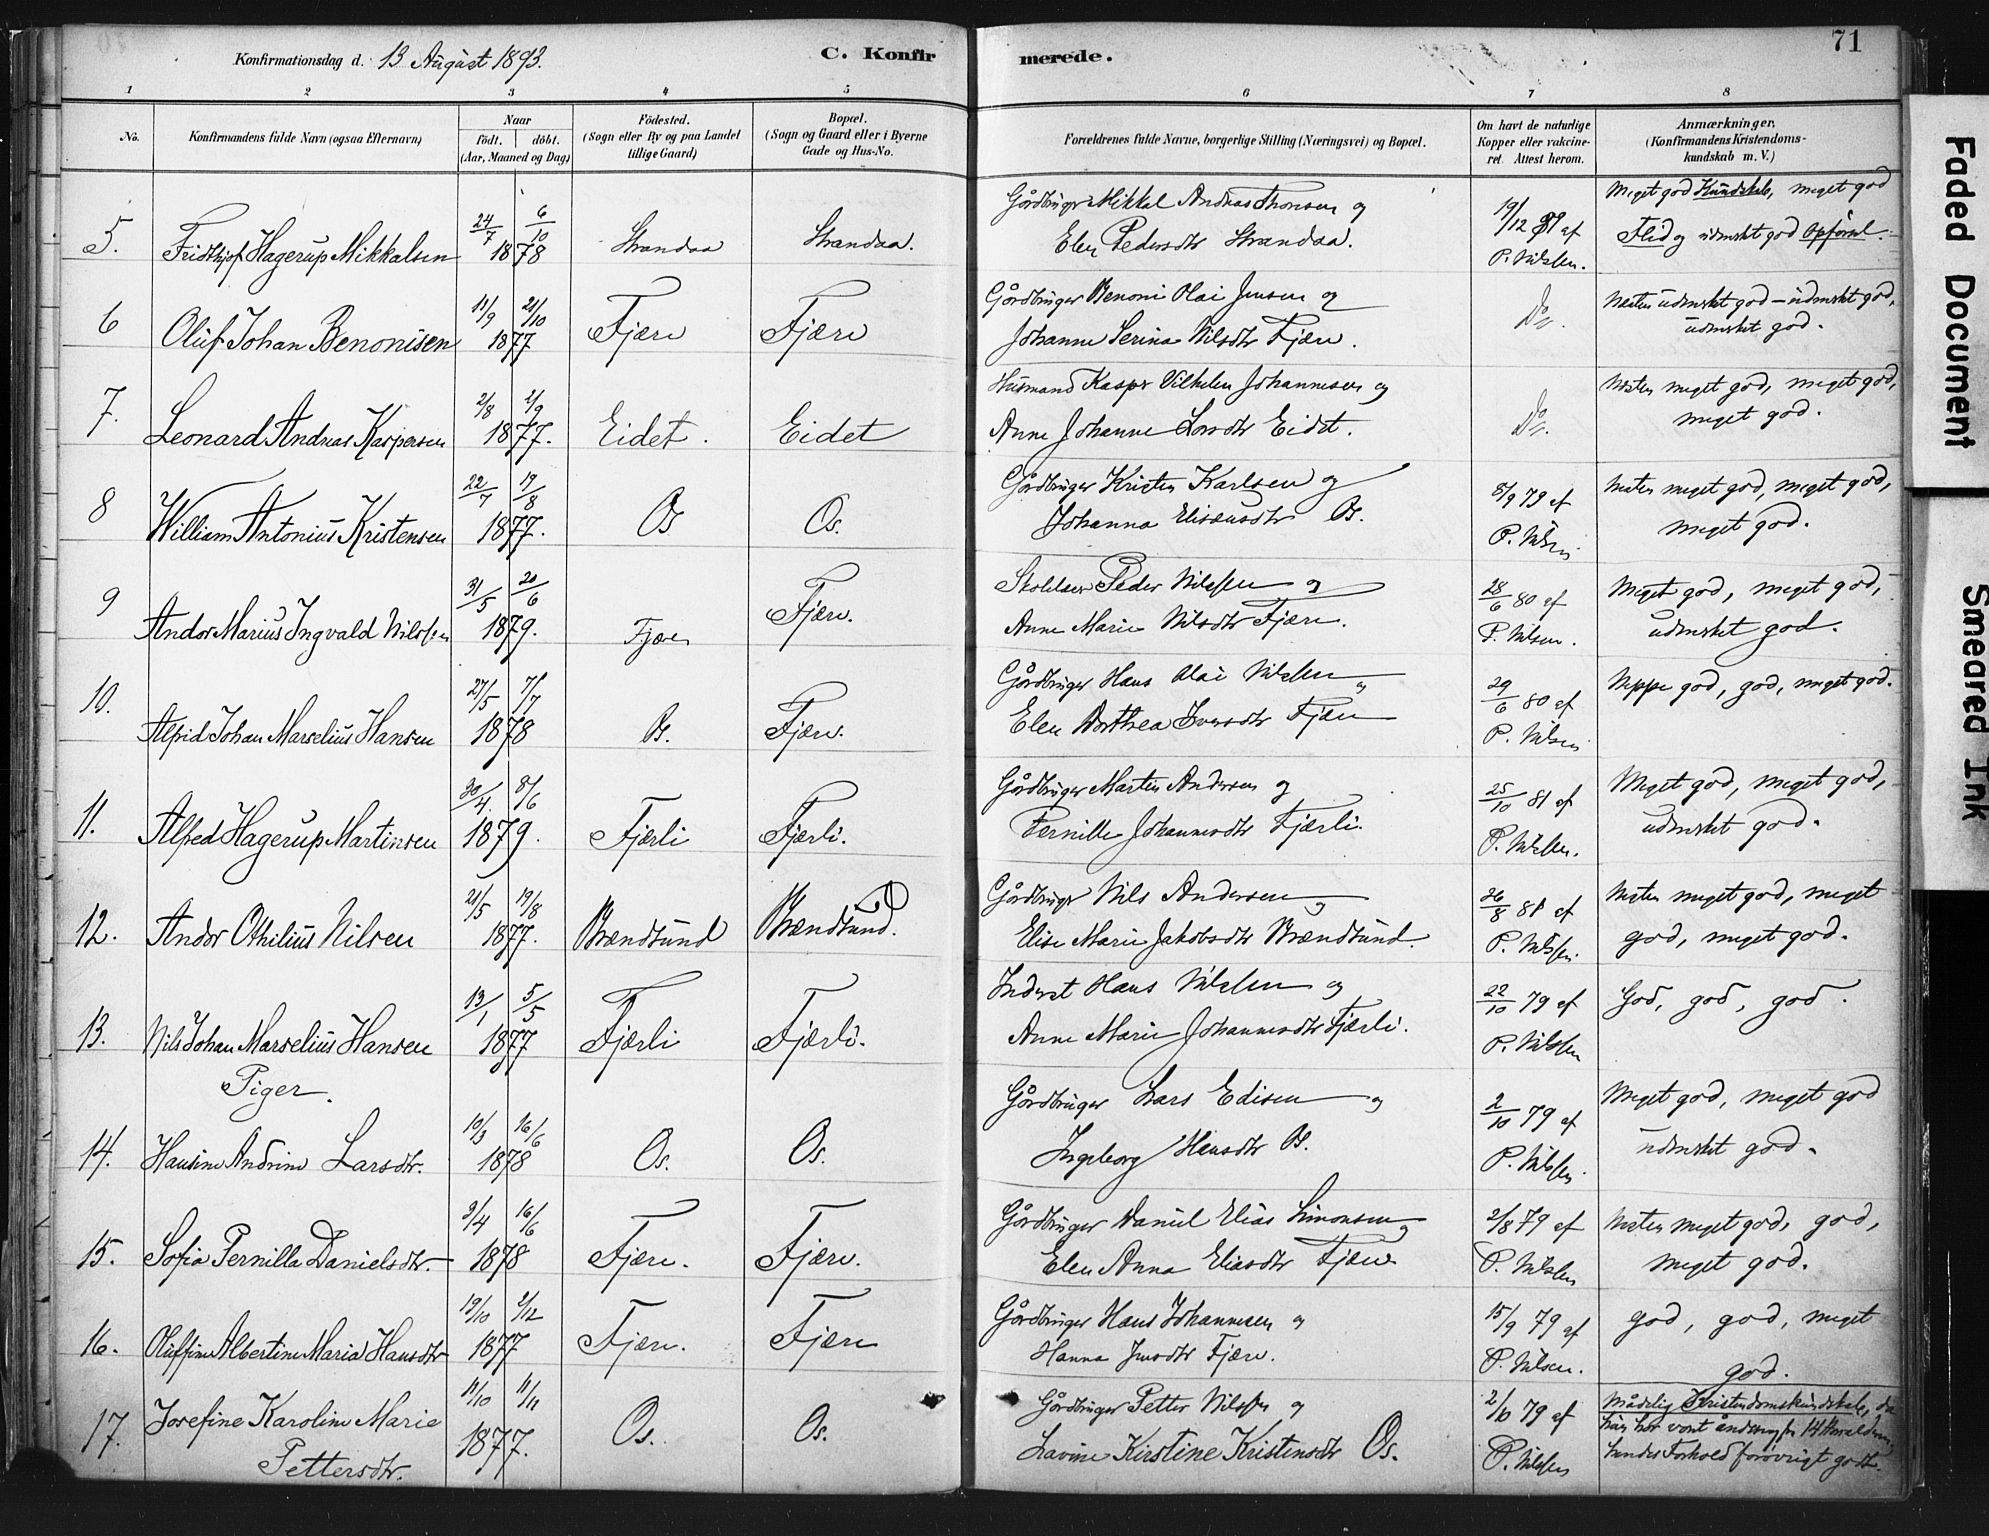 71
Konfirmationsdag d. 13 August 1893.
C. Konfirmerede.
1 2 3 4 5 6 7 8
No.
Konfirmandens fulde Navn (ogsaa Efternavn)
Naar
födt. döbt.
(Aar, Maaned og Dag)
Födested.
(Sogn eller By og paa Landet
tillige Gaard)
Bopæl.
(Sogn og Gaard eller i Byerne
Gade og Hus-No.
Forældrenes fulde Navne, borgerlige Stilling (Næringsvei) og Bopæl.
Om havt de naturlige
Kopper eller vakcine-
ret. Attest herom.
Anmærkninger,
(Konfirmandens Kristendoms-
kundskab m. V.)
5. Fridthjof Hagerup Mikkalsen 24/7 6/10 1878 Strandaa Strandaa.
Gårdbruger Mikkal Andreas Thonsen og
Elen Pedersdtr Strandaa.
19/12 81 af
P. Nilssen.
Meget god Kundskab, meget god
Flid og udmrket god Opførsel.
6 Oluf Johan Benonisen 11/9 21/10 1877 Fjære Fjære
Gårdbruger Benoni Olai Jensen og
Johanne Serina Nilsdtr Fjære.
Do.
Næsten udmrket god - udmrket god,
udmrket god.
7. Leonard Andreas Kaspersen 2/8 2/9 1877. Eidet. Eidet
Husmand Kaspr Vilhelm Johannesen og
Anne Johanne Larsdtr Eidet.
Do.
Næsten meget god, meget god,
meget god.
8 William Antonius Kristensen 22/7 19/8 1877. Os Os.
Gårdbruger Kristen Karlsen og
Johanna Elisæusdtr Os.
8/9 79 af
P. Nilsen
Næsten meget god, meget god,
meget god.
9 Andor Marius Ingvald Nilssen 31/5 20/6 1879. Fjære Fjære.
Peder Nilssen og
Anne Marie Nilsdtr Fjære.
28/6 80 af
P. Nilsen.
Meget god, meget god,
udmrket god.
10. Alfrid Johan Marselius Hansen 27/5 7/7 1878 Os. Fjære.
Gårdbruger Hans Olai Nilssen og
Elen Dorthea Iversdtr Fjære
29/6 80 af
P. Nilsen
Neppe god, god, meget god.
11. Alfred Hagerup Martinsen 30/4 8/6 1879. Fjærli Fjærli.
Gårdbruger Martin Andersen og
Pernille Johannesdtr Fjærli.
25/10 81 af
P. Nilssen.
Meget god, meget god,
udmrket god.
12. Andor Othilius Nilsen 21/5 19/8 1877. Brændsund Brændsund.
Gårdbruger Nils Andersen og
Elise Marie Jakobsdtr Brændsund.
26/8 81 af
P. Nilssen
Næsten meget god, meget
god, meget god.
13. Nils Johan Marselius Hansen 13/1 5/5 1877 Fjærli Fjærli.
Inderst Hans Nilssen og
Anne Marie Johannesdtr Fjærli.
22/10 79 af
P. Nilssen
God, god, god.
Piger.
14. Hansine Andrine Larsdtr. 10/3 16/6 1878 Os. Os.
Gårdbruger Lars Edisen og
Ingeborg Hansdtr Os.
2/10 79 af
P. Nilssen.
Meget god, meget god
udmrket god.
15. Sofia Pernilla Danielsdtr. 3/4 16/6 1878 Fjære. Fjære.
Gårdbruger Daniel Elias Simonsen og
Elen Anna Eliasdtr Fjære
2/8 79 af
P. Nilssen
Næsten meget god, god,
meget god.
16. Oluffine Albertine Maria Hansdtr 19/10 2/12 1877 Fjære. Fjære
Gårdbruger Hans Johannesen og
Hanna Jensdtr Fjære.
15/9 79 af
P. Nilsen.
god, god, meget
god.
17. Josefine Karoline Marie
Pettersdtr. 11/10 11/11 1877. Os. Os.
Gårdbruger Petter Nilssen og
Lavine Kirstine Kristensdtr Os.
2/10 79 af
P. Nilssen
Mådelig Kristendomskundskab, da
hun har vært
hendes Forhold forøvrigt godt.
Faded Document
Smeared Ink